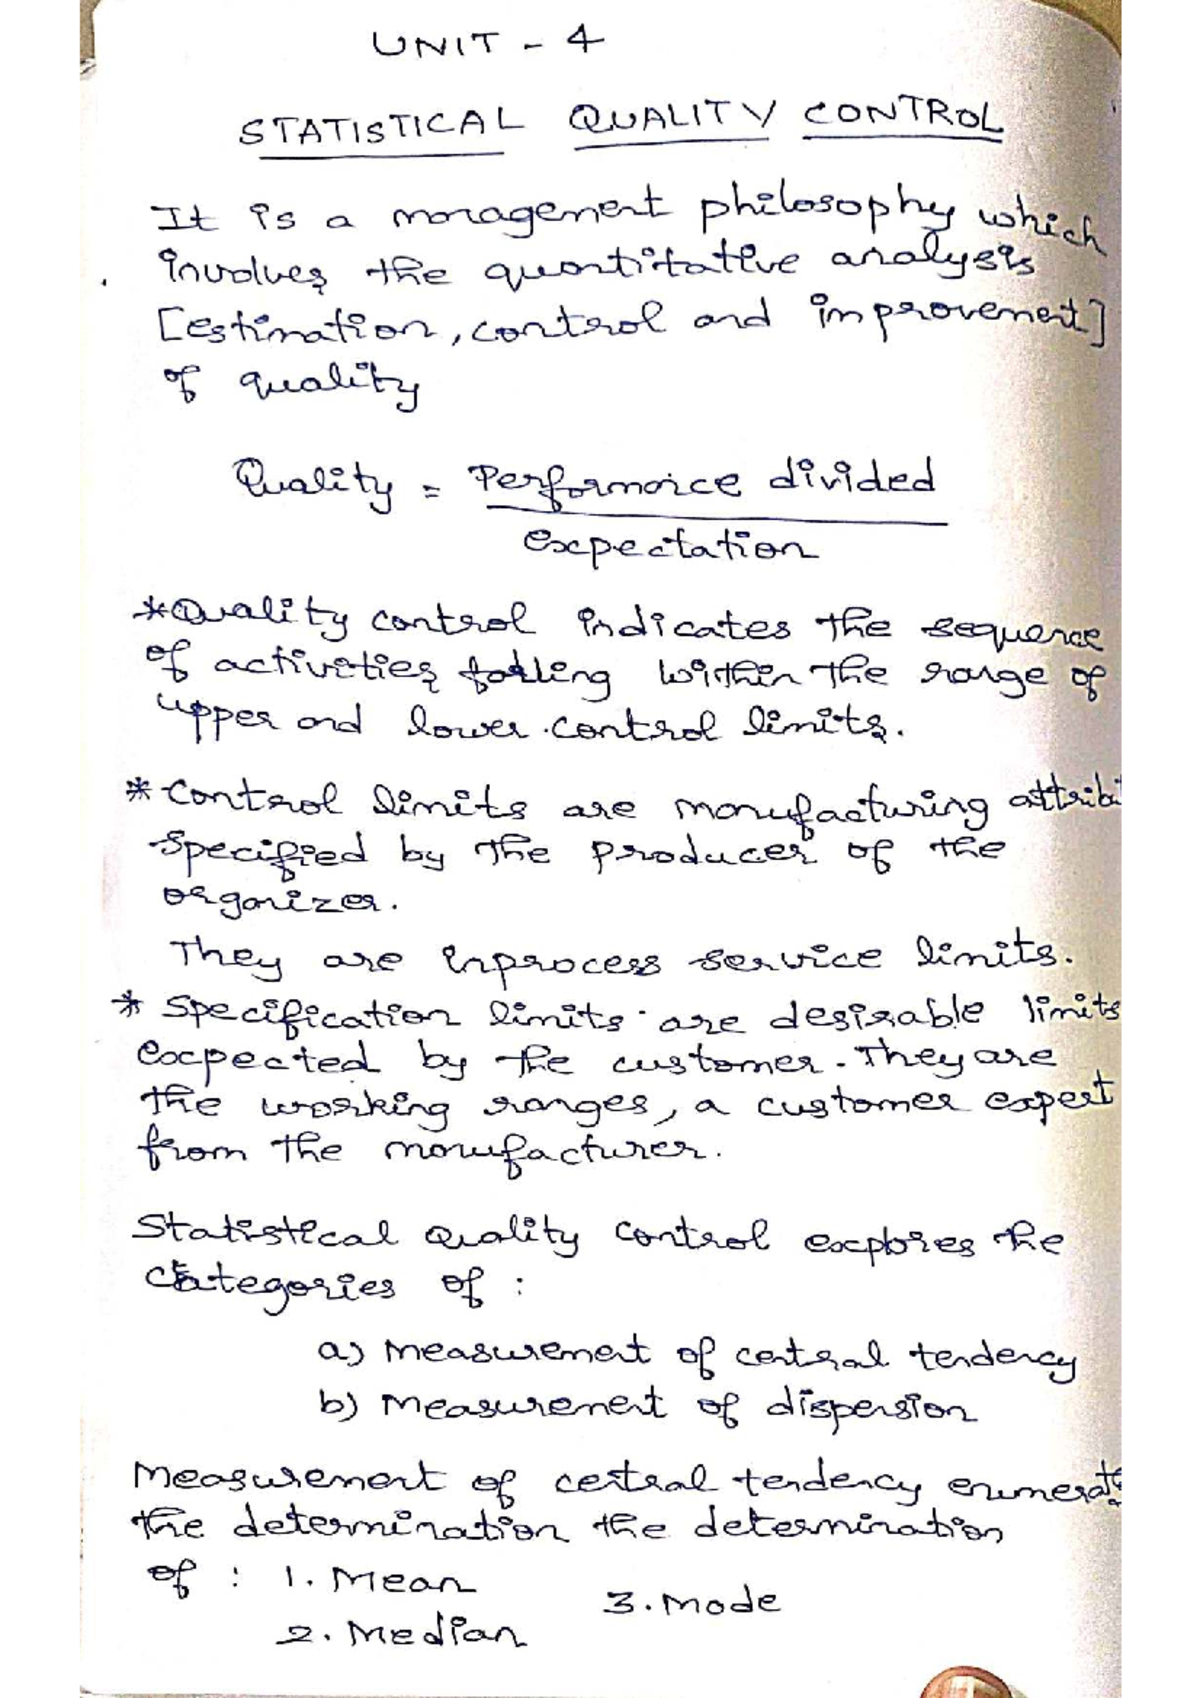 UNIT - 4
STATISTICAL QUALITY CONTROL
It is a management philosophy which
involves the quantitative analysis
[estimation, control and improvement]
of quality
Quality = Performance divided
expectation
*Quality control indicates the sequence
of activities falling within the range of
upper and lower control limits.
* Control limits are manufacturing attrib
specified by the producer of the
organizer.
They are inprocess service limits.
* Specification limits are desirable limits
expected by the customer. They are
the working ranges, a customer expert
from the manufacturer.
Statistical Quality control explores the
categories of :
a) Measurement of central tendency
b) Measurement of dispersion
Measurement of central tendency enumerate
the determination the determination
of : 1. Mean
3. Mode
2. Median